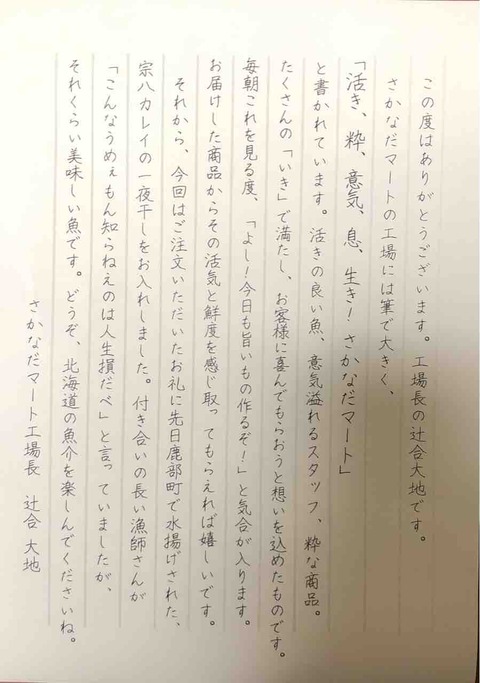 この度はありがとうございます。工場長の辻合大地です。
さかなだマートの工場には筆で大きく、
「活き、粋、意気、息、生き！さかなだマート」
と書かれています。活きの良い魚、意気溢れるスタッフ、粋な商品。
たくさんの「いき」で満たし、お客様に喜んでもらおうと想いを込めたものです。
毎朝これを見る度、「よし！今日も旨いもの作るぞ！」と気合が入ります。
お届けした商品からその活気と鮮度を感じ取ってもらえれば嬉しいです。
それから、今回はご注文いただいたお礼に先日鹿部町で水揚げされた、
宗八カレイの一夜干しをお入れしました。付き合いの長い漁師さんが
「こんなうめぇもん知らねえのは人生損だべ」と言っていましたが、
それくらい美味しい魚です。どうぞ、北海道の魚介を楽しんでくださいね。
さかなだマート工場長　辻合 大地